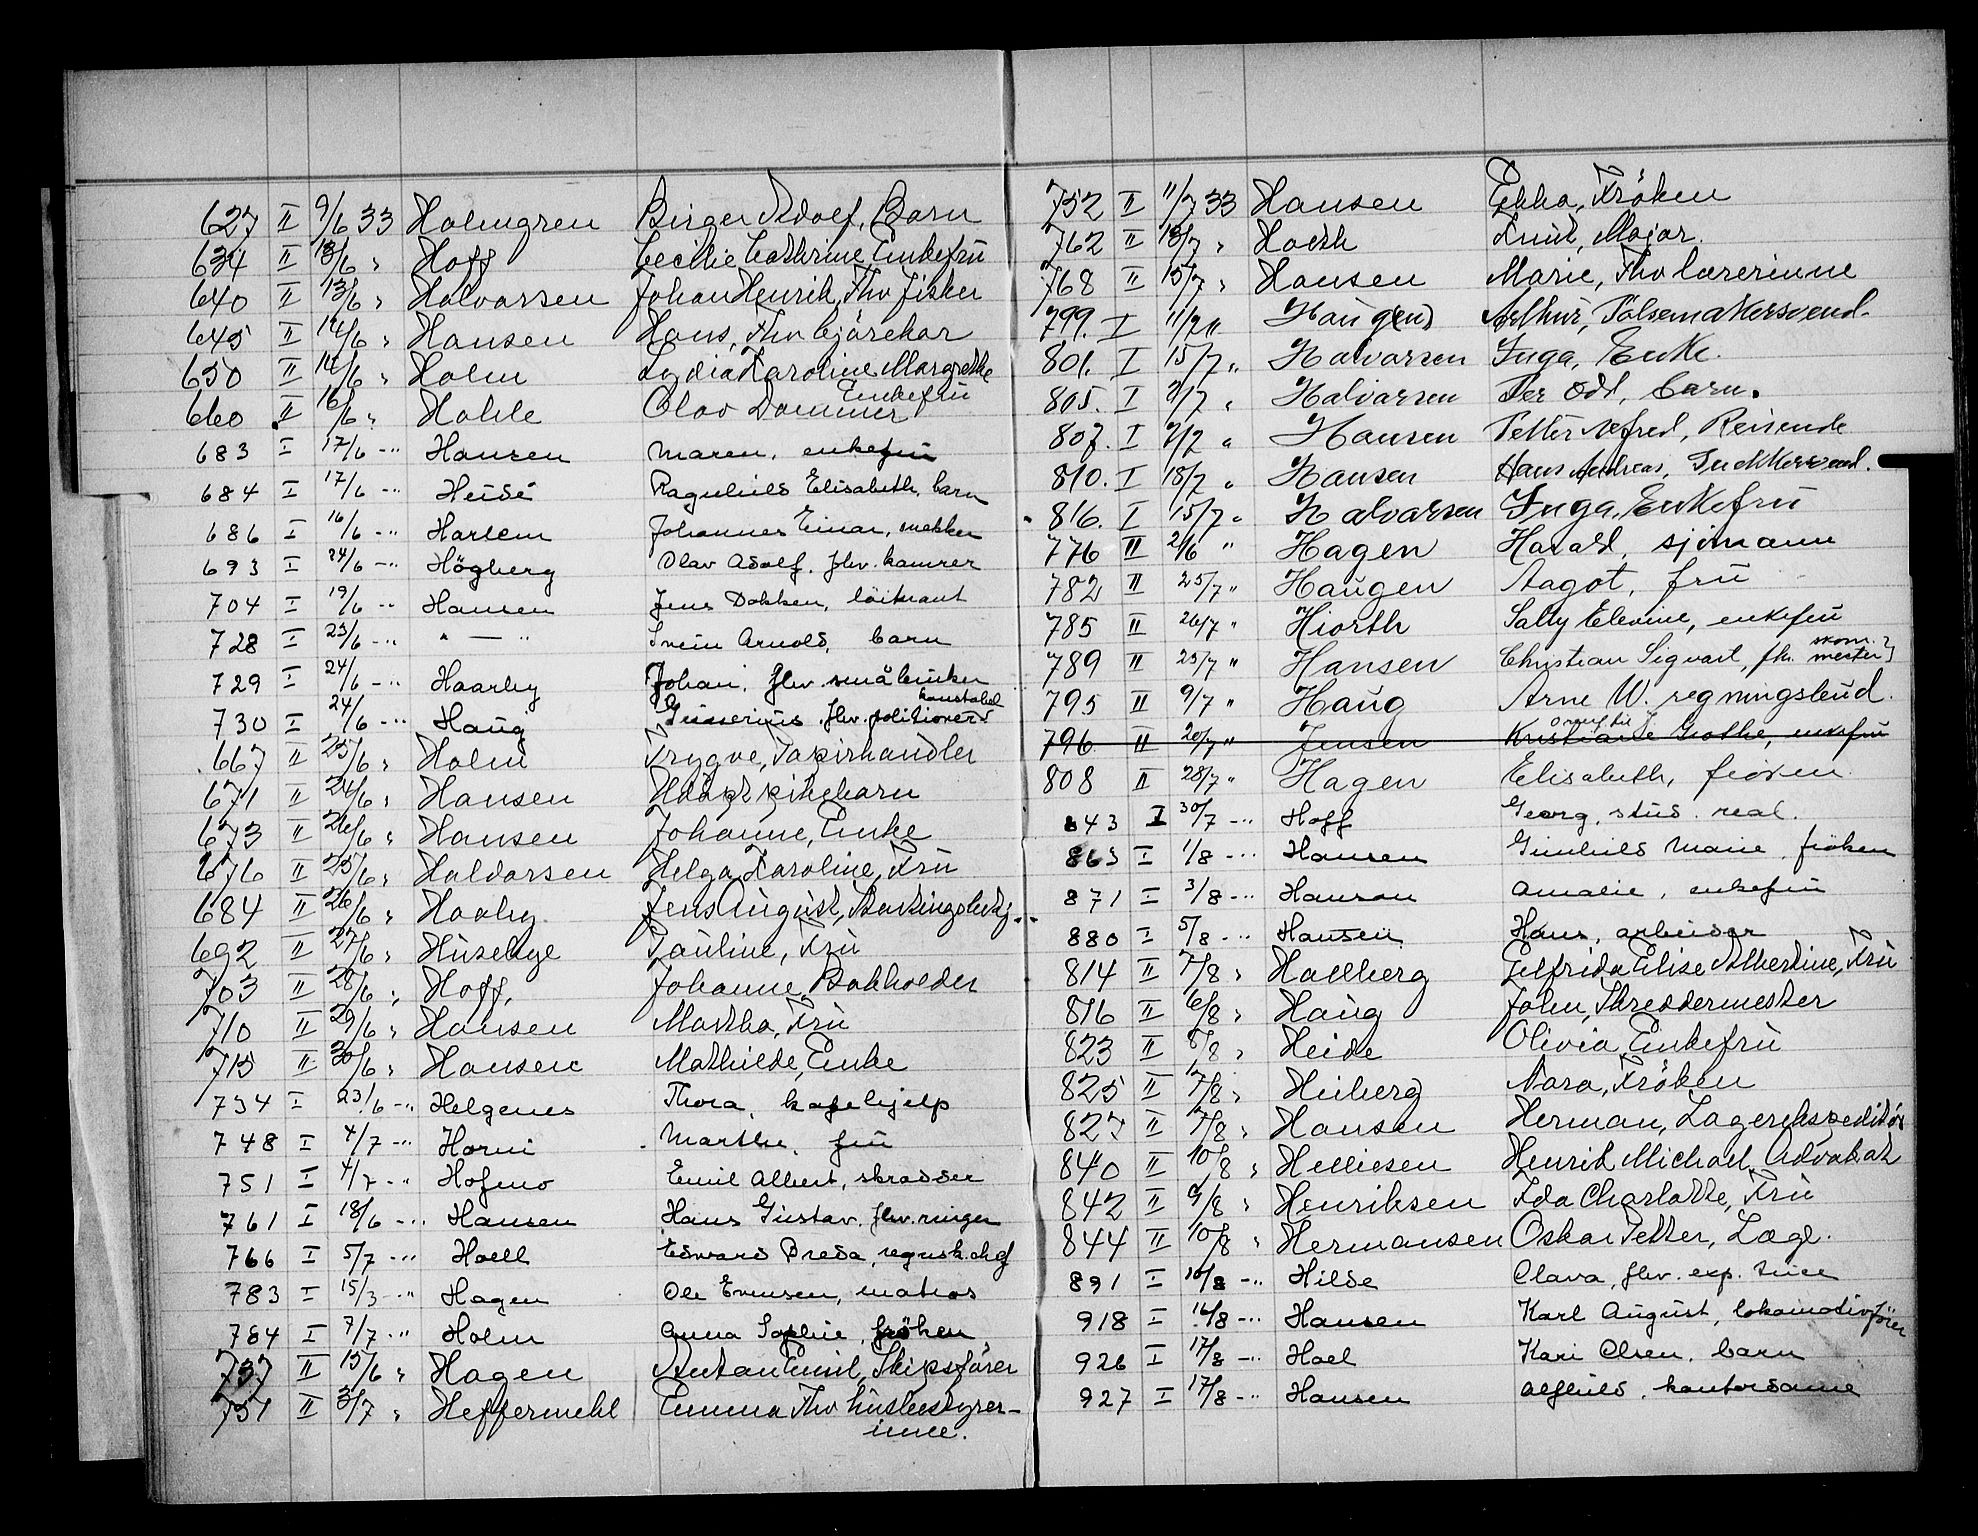 627 II 9/6 33 Holmgren Birger Adolf, Barn
634 II 13/6 " Hoff Cecilie Cathrine, Enkefrü
640 II 13/6 " Halvorsen Johan Henrik, Fhv fisker
645 II 14/6 " Hansen Hans, Fhv kjörekar
650 II 14/6 " Holm Lydia Karoline Margrethe
Enkefrü
660 II 16/6 " Hohle Olav Dammer
683 I 17/6 -"- Hansen Maren, enkefrü
684 I 17/6 -"- Heide Ragnhild Elisabeth, barn
686 I 16/6 -"- Harlem Johannes Einar, snekker
693 I 24/6 -"- Högberg Olav Adolf, fhv. kamrer
704 I 19/6 -"- Hansen Jens Dokken, löitnant
728 I 23/6 -"- " — " Svein Arnold, barn
729 I 24/6 -"- Haarby Johan, fhv. småbruker
konstabel
730 I 24/6 -"- Haug Gunerius, fhv. politiover
667 II 25/6 " Holm Trygve, Papirhandler
671 II 24/6 " Hansen pikebarn
673 II 26/6 " Hansen Johanne, Enke
676 II 25/6 " Haldorsen Helga Karoline, Frü
684 II 26/6 " Haaby Jens August,
692 II 27/6 " Hüsebye Pauline, Frü
703 II 28/6 " Hoff, Johanne, Bokholder
710 II 29/6 " Hansen Martha, Frü
715 II 30/6 " Hansen Mathilde, Enke
734 I 23/6 -"- Helgenes Thora, kafehjelp
748 I 4/7 -"- Horni Marthe, frü
751 I 4/7 -"- Hofmo Emil Albert, skrædder
761 I 18/6 -"- Hansen Hans Güstav, fhv. ringer
766 I 5/7 -"- Hoell Edvard Breda, regnsk. chef
783 I 15/3 -"- Hagen Ole Evensen, matros
784 I 7/7 -"- Holm Anna Sophie, fröken
737 II 15/6 " Hagen Anton Emil, Skipsförer
751 II 3/7 " Heffermehl Emma Fhv hüsbestyrer-
inne.
752 II 11/7 33 Hansen Ebba, Fröken
762 II 13/7 " Hoeth Knut, Major.
768 II 15/7 " Hansen Marie, Fhv lærerinne
799. I 11/7 " Haugen Arthur, Pölsemakersvend.
801. I 15/7 " Halvorsen Inga, Enke.
805. I 2/7 " Halvorsen Per Odd, barn.
807. I 7/7 " Hansen Petter Alfred, Reisende
810. I 18/7 " Hansen Hans Andreas, Snekkersvend.
816. I 15/7 " Halvorsen Inga, Enkefrü
776 II 2/6 " Hagen Harald, sjömann
782 II 25/7 " Haugen Aagot, frü
785 II 26/7 " Hiorth Sally Elevine, enkefrü
skom.
789 II 25/7 " Hansen Christian Sigvart, fh. mester
795 II 9/7 " Haug Arne W. regningsbud.
796 II 20/7 " Jensen Kristiane Grothe, enkefrü
808 II 28/7 " Hagen Elisabeth, fröken
843 I 30/7 -"- Hoff Georg, stud. real.
863 I 1/8 -"- Hansen Gunhild Marie, fröken
871 I 3/8 -"- Hanson Amalie, enkefrü
880 I 5/8 -"- Hansen Hans, arbeider
814 II 7/8 " Hallberg Elfrida Elise Albertine, Frü
816 II 6/8 " Haug John, Skreddermester
823 II 8/8 " Heide Olivia, Enkefrü
825 II 7/8 " Heiberg Nora, Fröken
827 II 7/8 " Hansen Herman, Lagerekspeditör
840 II 10/8 " Helliesen Henrik Michael, Advokat
842 II 9/8 " Henriksen Ida Charlotte, Frü
844 II 10/8 " Hermansen Oskar Petter, Læge.
891 I 10/8 -"- Hilde Olava, fhv. exp. trice
918 I 16/8 -"- Hansen Karl August, lokomotivförer
926 I 17/8 -"- Hoel Kari Olsen, barn
927 I 17/8 -"- Hansen Alfhild, kontordame